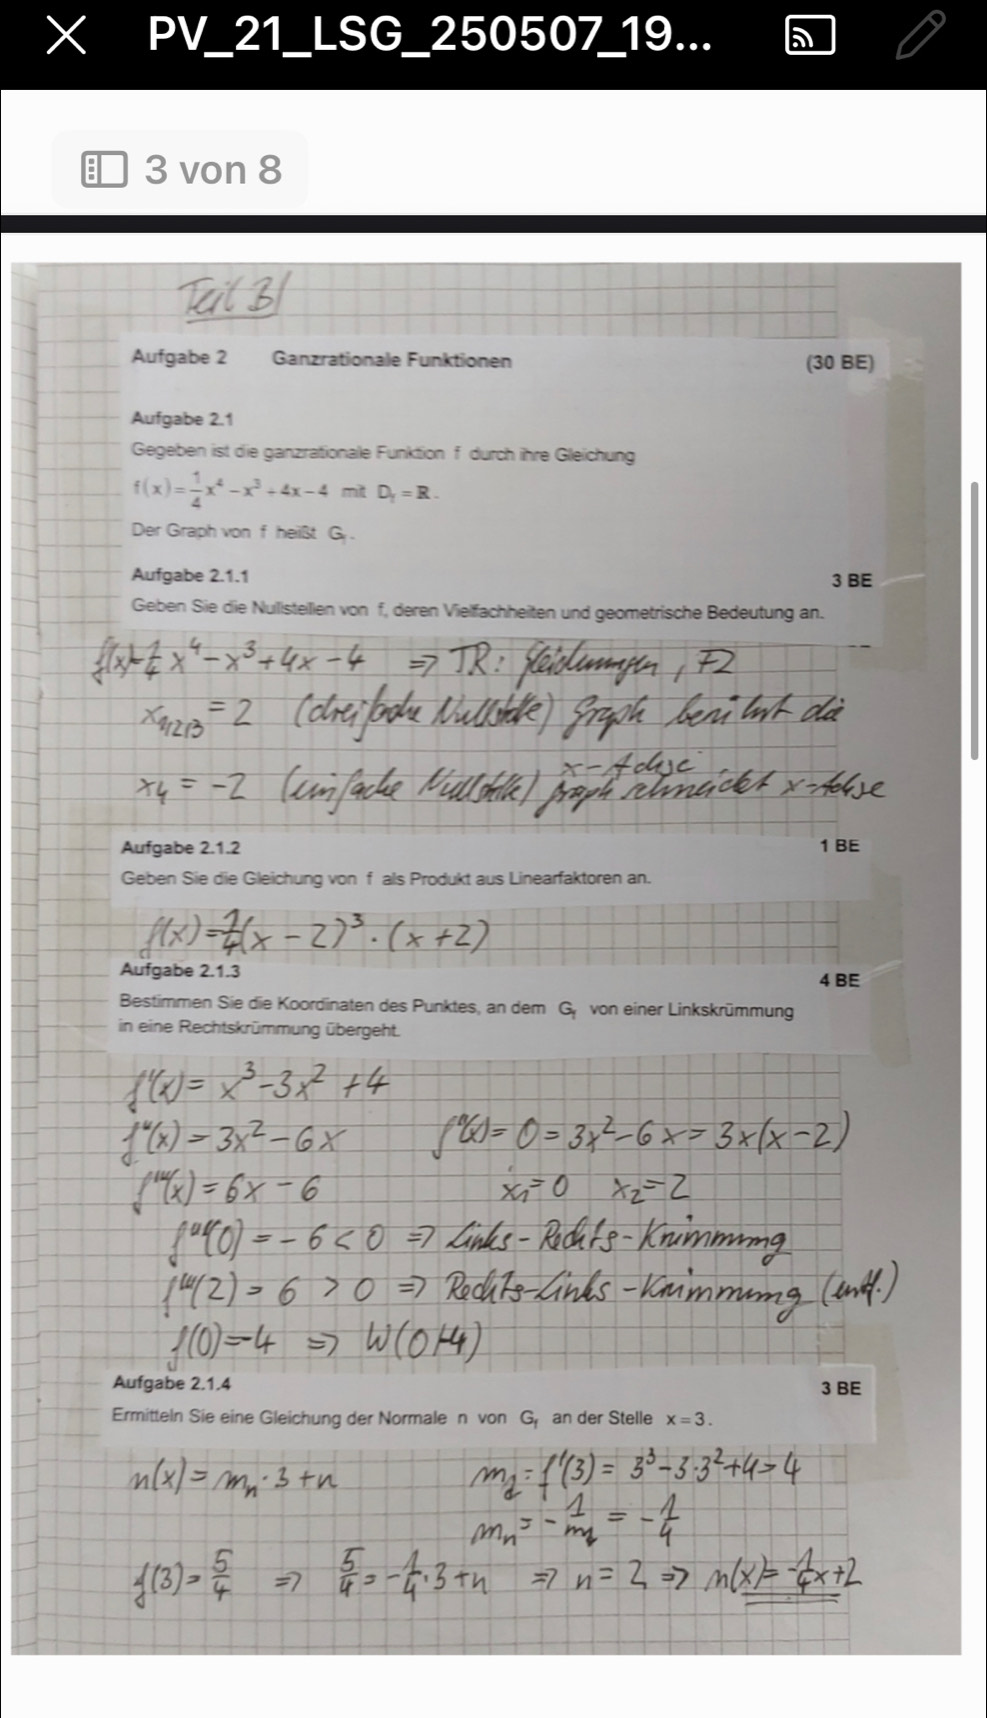 PV_21_LSG_250507_19...
3 von 8
Teil B
Aufgabe 2 Ganzrationale Funktionen (30 BE)
Aufgabe 2.1
Gegeben ist die ganzrationale Funktion f durch ihre Gleichung
f(x)=1/4x⁴-x³+4x-4 mit D_f=ℝ.
Der Graph von f heißt G_f.
Aufgabe 2.1.1 3 BE
Geben Sie die Nullstellen von f, deren Vielfachheiten und geometrische Bedeutung an.
f(x)=1/4 x⁴-x³+4x-4 ⇒ TR: Gleichungen, F2
x_1/2/3 = 2 (dreifache Nullstelle) Graph berührt die
x-Achse
x₄ = -2 (einfache Nullstelle) Graph schneidet x-Achse
Aufgabe 2.1.2 1 BE
Geben Sie die Gleichung von f als Produkt aus Linearfaktoren an.
f(x)=1/4(x-2)³·(x+2)
Aufgabe 2.1.3 4 BE
Bestimmen Sie die Koordinaten des Punktes, an dem G_f von einer Linkskrümmung
in eine Rechtskrümmung übergeht.
f'(x)= x³-3x²+4
f''(x)=3x²-6x f''(x)=0=3x²-6x=3x(x-2)
f'''(x)=6x-6 x₁=0 x₂=2
f'''(0)=-6<0 ⇒ Links-Rechts-Krümmung
f'''(2)=6>0 ⇒ Rechts-Links-Krümmung (entf.)
f(0)=-4 ⇒ W(0|-4)
Aufgabe 2.1.4 3 BE
Ermitteln Sie eine Gleichung der Normale n von G_f an der Stelle x=3.
n(x)=m_n·3+n m_t=f'(3)=3³-3·3²+4=4
m_n=-1/m_t=-1/4
f(3)=5/4 ⇒ 5/4=-1/4·3+n ⇒ n=2 ⇒ n(x)=-1/4x+2